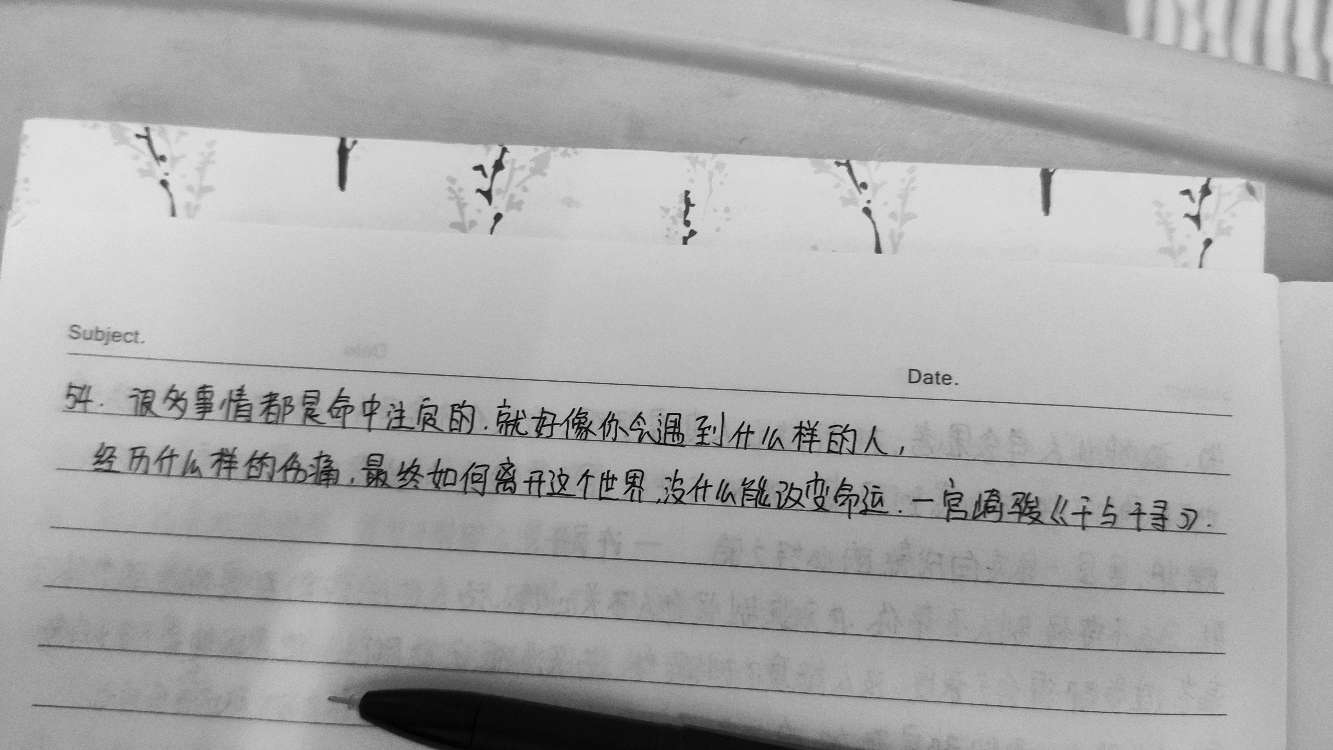 Subject.
Date.
54. 很多事情都是命中注定的.就好像你会遇到什么样的人,
经历什么样的伤痛,最终如何离开这个世界,没什么能改变命运.一宫崎骏《千与千寻》.